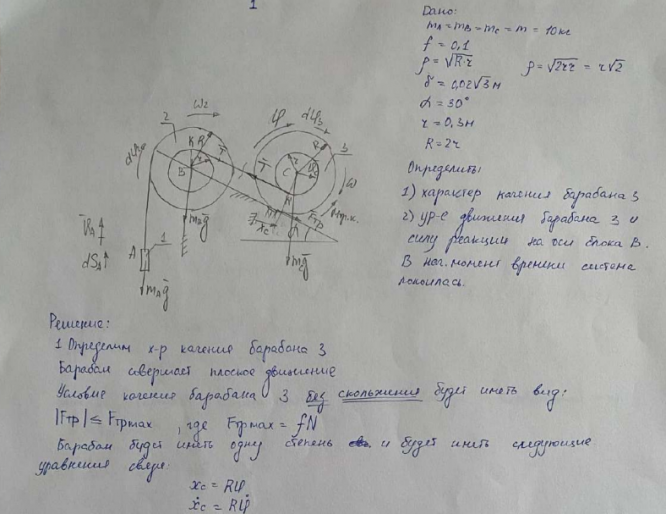 1
Дано:
mA = mB = mC = m = 10кг
f = 0,1
ρ = √R·r    ρ = √2rr = r√2
δ = 0,02√3 м
α = 30°
r = 0,3м
R = 2r
Определить:
1) характер качения барабана 3
2) ур-е движения барабана 3 и
силу реакции на оси блока B.
В нач. момент времени система
покоилась.
2
ω2
K
R
B
T
φ
dφ3
3
T
r
R
C
ω
Mтр.к.
Fтр
xC
α
mBg
mCg
VA
1
A
dSA
mAg
Решение:
1 Определим х-р качения барабана 3
Барабан совершает плоское движение
Условие качения барабана 3 без скольжения будет иметь вид:
|Fтр| ≤ Fтрmax , где Fтрmax = fN
Барабан будет иметь одну степень св. и будет иметь следующие
уравнения связи:
xC = Rφ
ẋC = Rφ̇